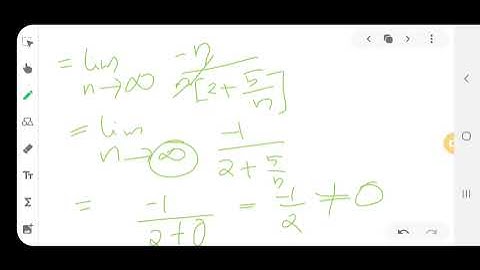 = lim n→∞ -n / n[2 + 5/n]
= lim n→∞ -1 / 2 + 5/n
= -1 / 2+0 = -1/2 ≠ 0